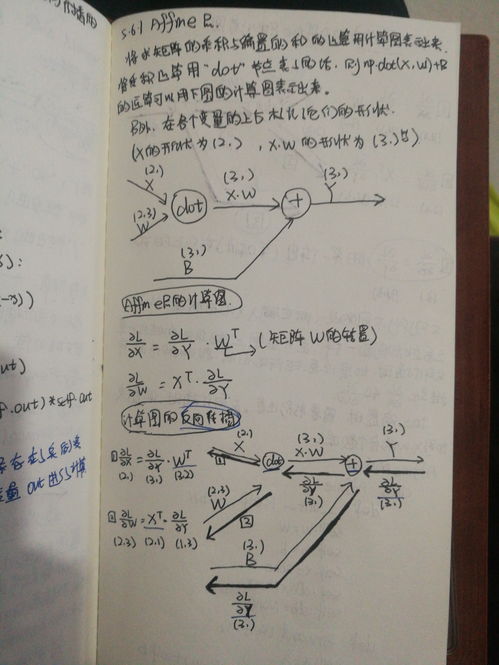 5.6.1 Affine 层
将求矩阵的乘积与偏置的和的运算用计算图表示出来.
将乘积运算用"dot"节点表示的话. 则 np.dot(X,W)+B
的运算可以用下图的计算图表示出来。
另外, 在各个变量的上方标记它们的形状.
(X的形状为(2,) , X·W的形状为(3,)等)
(2,)
X
(2,3)
W
dot
(3,)
X·W
+
(3,)
Y
(3,)
B
Affine层的计算图.
∂L/∂X = ∂L/∂Y · W^T → (矩阵W的转置)
∂L/∂W = X^T · ∂L/∂Y
计算图的反向传播
1 ∂L/∂X = ∂L/∂Y · W^T
(2,) (3,) (3,2)
2 ∂L/∂W = X^T · ∂L/∂Y
(2,3) (2,1) (1,3)
(2,)
X
1
dot
(3,)
X·W
∂L/∂Y
(3,)
+
(3,)
Y
∂L/∂Y
(3,)
(2,3)
W
2
(3,)
B
∂L/∂Y
(3,)
):
-3))
out)
f.out) * self.out
out 进行计算